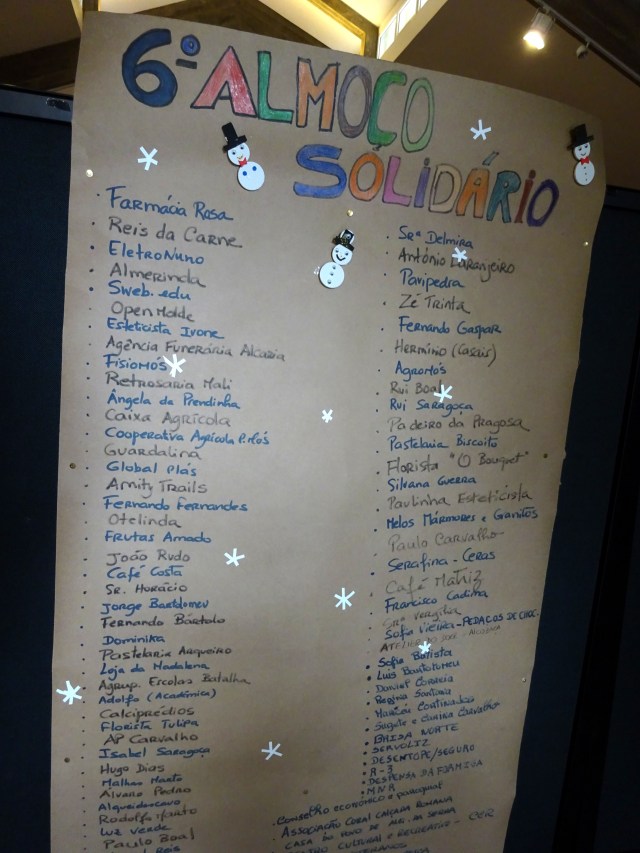 6º ALMOÇO
SOLIDÁRIO
Farmácia Rosa
Reis da Carne
EletroNuno
Almerinda
Sweb.edu
OpenMolde
Esteticista Ivone
Agência Funerária Alcaria
Fisiomós
Retrosaria Mali
Ângela da Prendinha
Caixa Agrícola
Cooperativa Agrícola P.Mós
Guardalina
Global Plás
Amity Trails
Fernando Fernandes
Otelinda
Frutas Amado
João Rudo
Café Costa
Sr. Horácio
Jorge Bartolomeu
Fernando Bártolo
Dominika
Pastelaria Arqueiro
Loja da Madalena
Agrup. Escolas Batalha
Adolfo (Académica)
Calciprédios
Florista Tulipa
AP Carvalho
Isabel Saragoça
Hugo Dias
Malhas
Álvaro Pedro
Alqueidoscavo
Rodolfo
Luz Verde
Paulo Boal
Reis
Srª Delmira
António Laranjeiro
Pavipedra
Zé Trinta
Fernando Gaspar
Hermínio (Casais)
Agromós
Rui Boal
Rui Saragoça
Padeiro da Pragosa
Pastelaria Biscoito
Florista "O Bouquet"
Silvana Guerra
Paulinha Esteticista
Melos Mármores e Granitos
Paulo Carvalho
Serafina - Ceras
Café Matriz
Francisco Cadima
Srª Vergília
Sofia Vieira - PEDAÇOS DE CHOC.
Sofia Batista
Luís Bartolomeu
Daniel Correia
Regina Santana
Marizu Cortinados
e Carina Carvalho
BRISA NORTE
SERVOLIZ
DESENTOPE/SEGURO
R-3
DESPENSA DA FÓRMIVA
MNR
CONSELHO ECONÓMICO e paroquial
ASSOCIAÇÃO CORAL CALÇADA ROMANA
CASA DO POVO DE ALQ. DA SERRA
CENTRO CULTURAL e RECREATIVO -